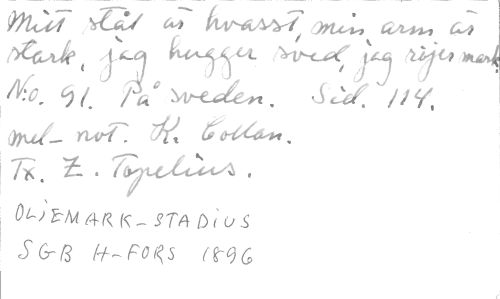 Mitt stål är hvasst, min arm är
stark, jag hugger sved, jag röjer mark.
N:o. 91. På sveden. Sid. 114.
mel-not. K. Collan.
Tx. Z. Topelius.
OLIEMARK-STADIUS
SGB H-FORS 1896